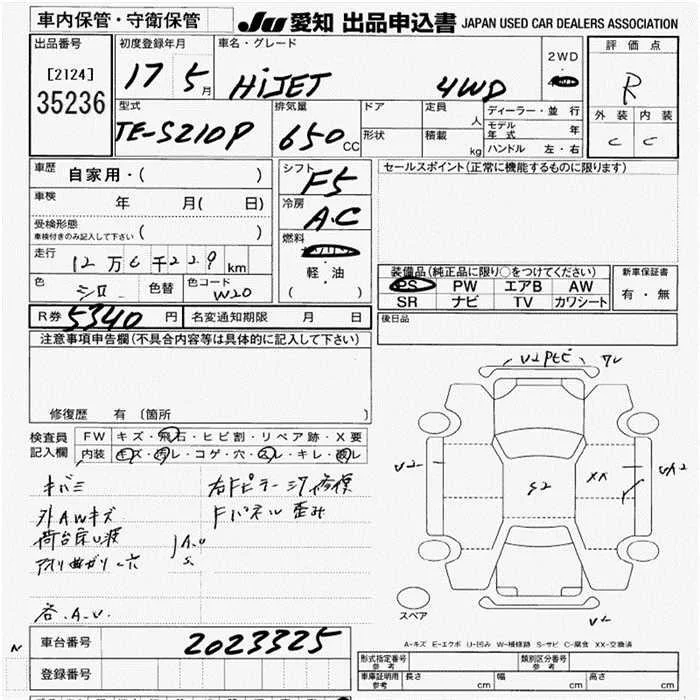 車内保管・守衛保管
JU 愛知 出品申込書 JAPAN USED CAR DEALERS ASSOCIATION
出品番号
[2124]
35236
初度登録年月
17 5月
車名・グレード
HiJET 4WD
2WD
評価点
R
外装 内装
C C
型式
TE-S210P
排気量
650CC
ドア
形状
定員 人
積載 kg
ディーラー・並行
モデル年式 年
ハンドル 左・右
車歴 自家用・( )
車検 年 月( 日)
受検形態
車検付きのみ記入して下さい ( )
走行 12万6千229km
色 シロ 色替 色コード W20
シフト F5
冷房 A.C
燃料
軽・油
( )
セールスポイント(正常に機能するものに限ります)
装備品(純正品に限り○をつけてください)
PS PW エアB AW
SR ナビ TV カワシート
新車保証書
有・無
R券 5340円 名変通知期限 月 日
後日品
注意事項申告欄(不具合内容等は具体的に記入して下さい)
修復歴 有 〔箇所 〕
検査員記入欄
FW キズ・飛石・ヒビ割・リペア跡・X要
内装 キズ・汚レ・コゲ・穴・スレ・キレ・破レ
キバミ
外AWキズ
荷台床凹波
右Fピラーシワ修復
Fパネル歪み
A.U
S.
谷.A.U.
U2
S2
XX
UA2
スペア
A-キズ E-エクボ U-凹み W-補修跡 S-サビ C-腐食 XX-交換済
車台番号 2023325
登録番号
形式指定番号 参考
類別区分番号 参考
車庫証明用 参考 長さ cm 幅 cm 高さ cm